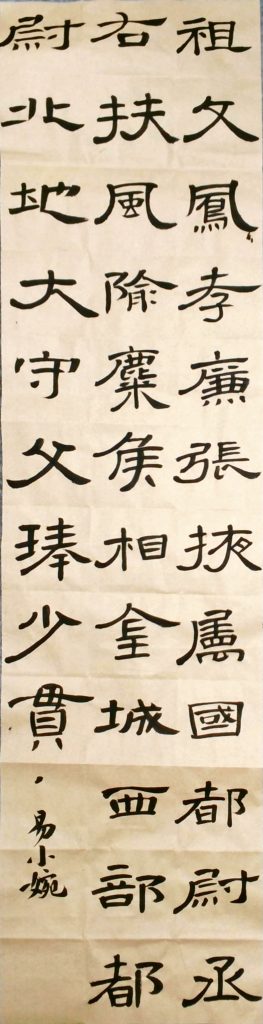 祖父鳳孝廉張掖屬國都尉丞
右扶風隃麋侯相金城西部都
尉北地大守父琫少貫、易小婉